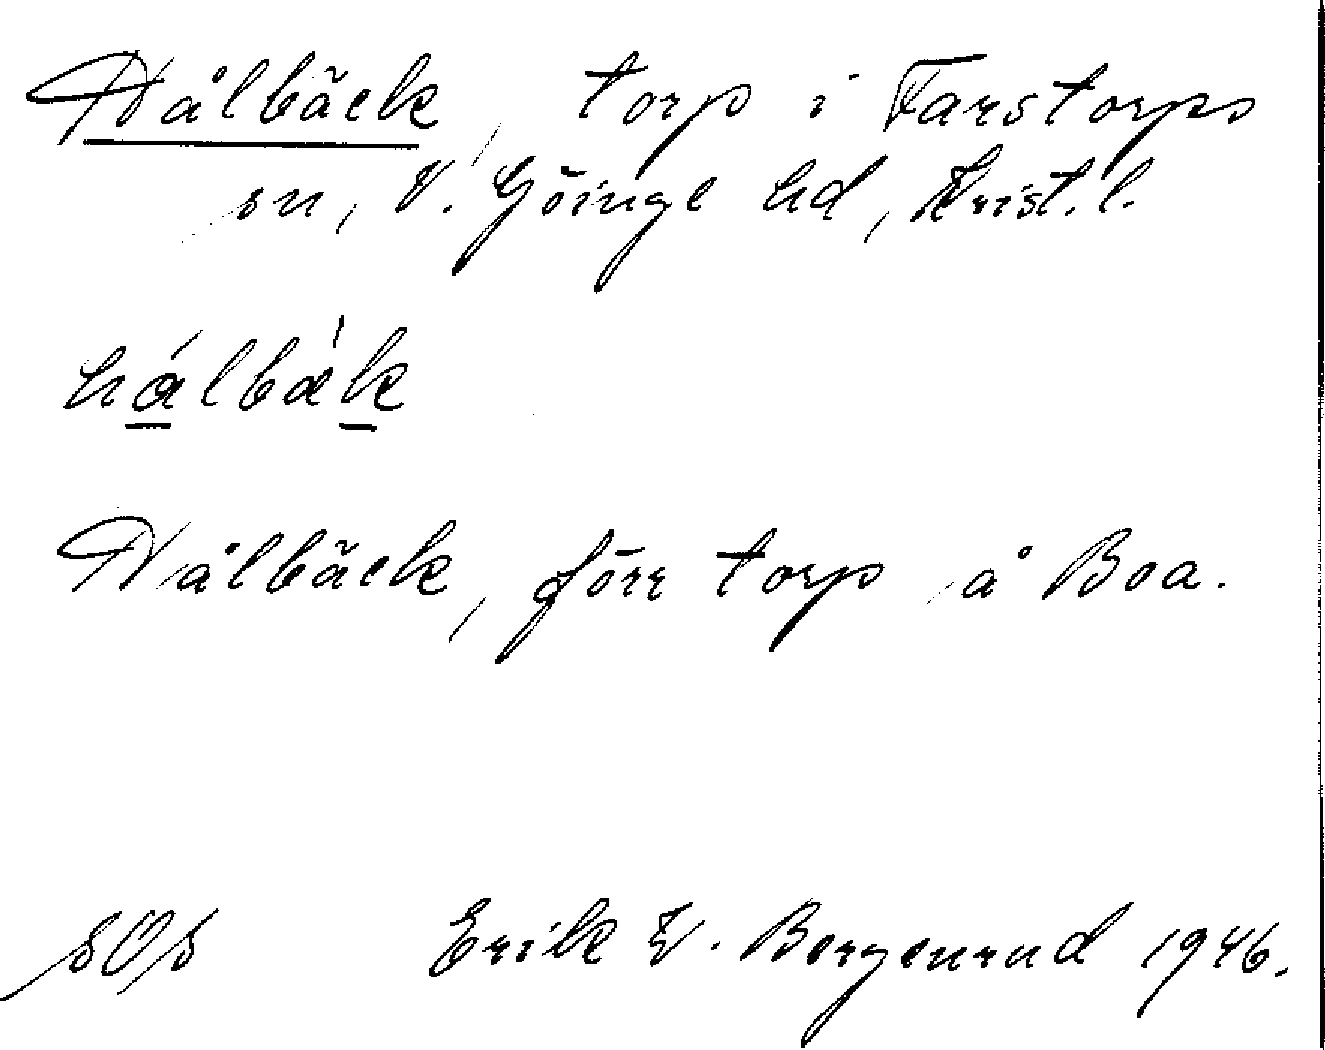 Hålbäck, torp i Farstorps
sn, V. Göinge hd, Krist. l.
hálbæ̀k
Hålbäck, förr torp å Boa.
SOS Erik W. Bergenrud 1946.